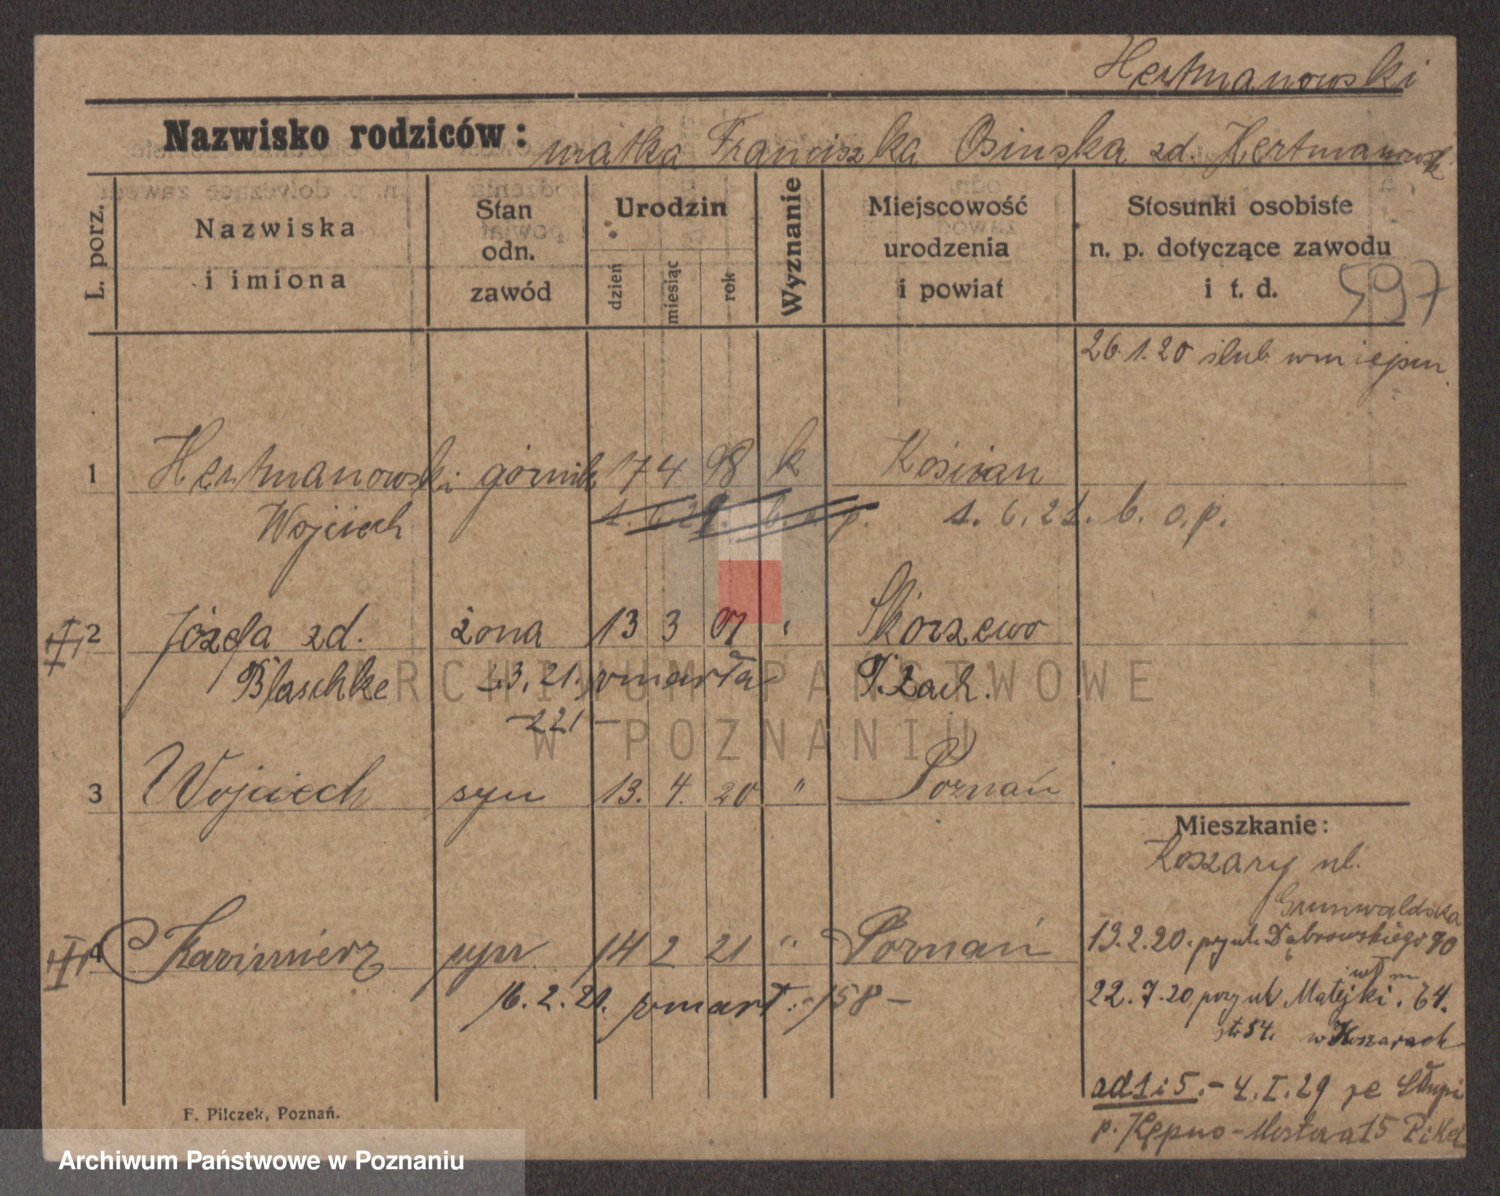 Hertmanowski
Nazwisko rodziców: matka Franciszka Osinska zd. Hertmanowsk
L. porz.
Nazwiska
i imiona
Stan
odn.
zawód
Urodzin
dzień
miesiąc
rok
Wyznanie
Miejscowość
urodzenia
i powiat
Stosunki osobiste
n. p. dotyczące zawodu
i t. d.
597
26.1.20 ślub w miejscu
1 Hertmanowski górnik 17 4 98 k Kościan
Wojciech 1. 6. 21. b. o. p. 1. 6. 21. b. o. p.
2 Józefa zd. żona 13 3 01 " Skórzewo
Blaschke 3. 21. zmarła P. Zach.
-221-
3 Wojciech syn 13. 4. 20 " Poznań
Mieszkanie:
Koszary ul.
Grunwaldska
4 Kazimierz syn 14 2 21 " Poznań
16. 2. 21. zmarł. -158-
13.2.20. przy ul. Dąbrowskiego 90
22.7.20 przy ul. Matejki. 64.
str 54. w Koszarach
ad 1 i 5. - 4. I. 29 ze Słupi
p. Kępno - 15
F. Pilczek, Poznań.
ARCHIWUM PAŃSTWOWE
W POZNANIU
Archiwum Państwowe w Poznaniu